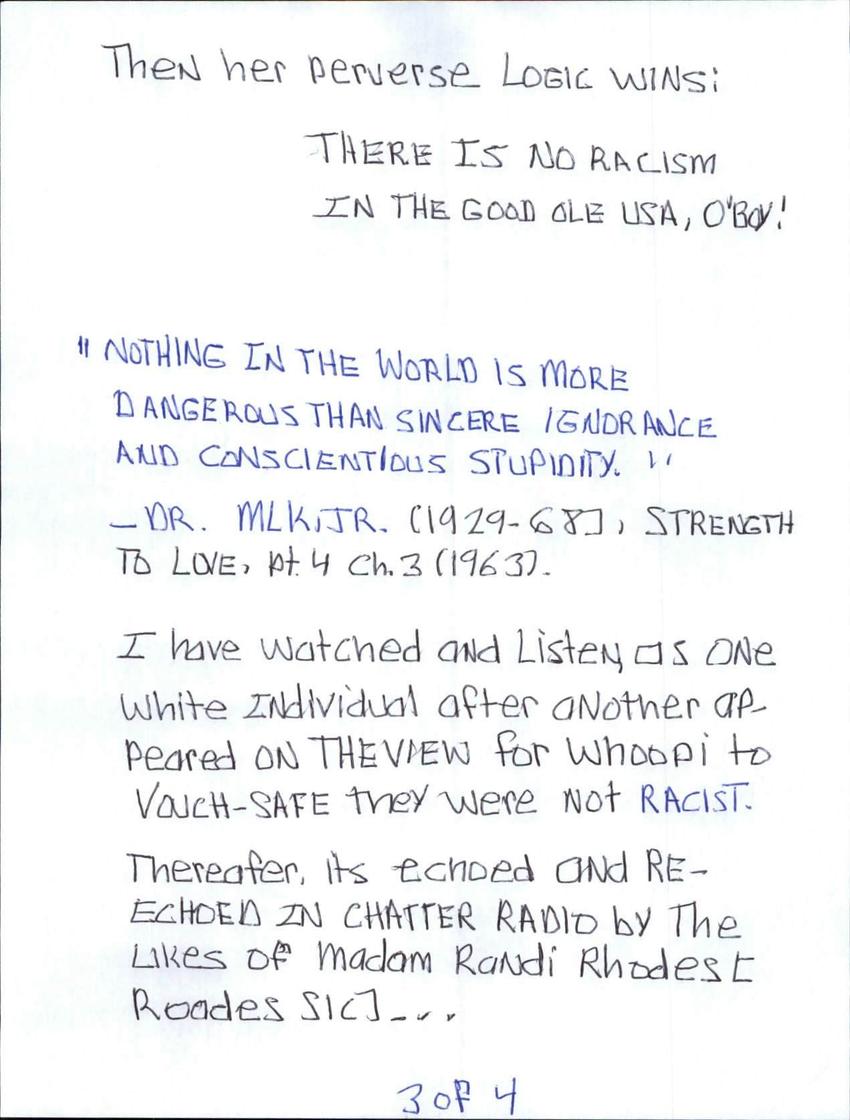 Then her perverse LOGIC WINS:
THERE IS NO RACISM
IN THE GOOD OLE USA, O'BOY!
" NOTHING IN THE WORLD IS MORE
DANGEROUS THAN SINCERE IGNORANCE
AND CONSCIENTIOUS STUPIDITY. "
— DR. MLK, JR. (1929-68], STRENGTH
TO LOVE, pt. 4 Ch. 3 (1963).
I have watched and Listen, as ONe
White INdividual after aNother ap-
peared ON THE VIEW for Whoopi to
VOUCH-SAFE they were Not RACIST.
Thereafer, its echoed aNd RE-
ECHOED IN CHATTER RADIO by The
Likes of Madam RaNdi Rhodes[
Roades SIC] - . . .
3 of 4